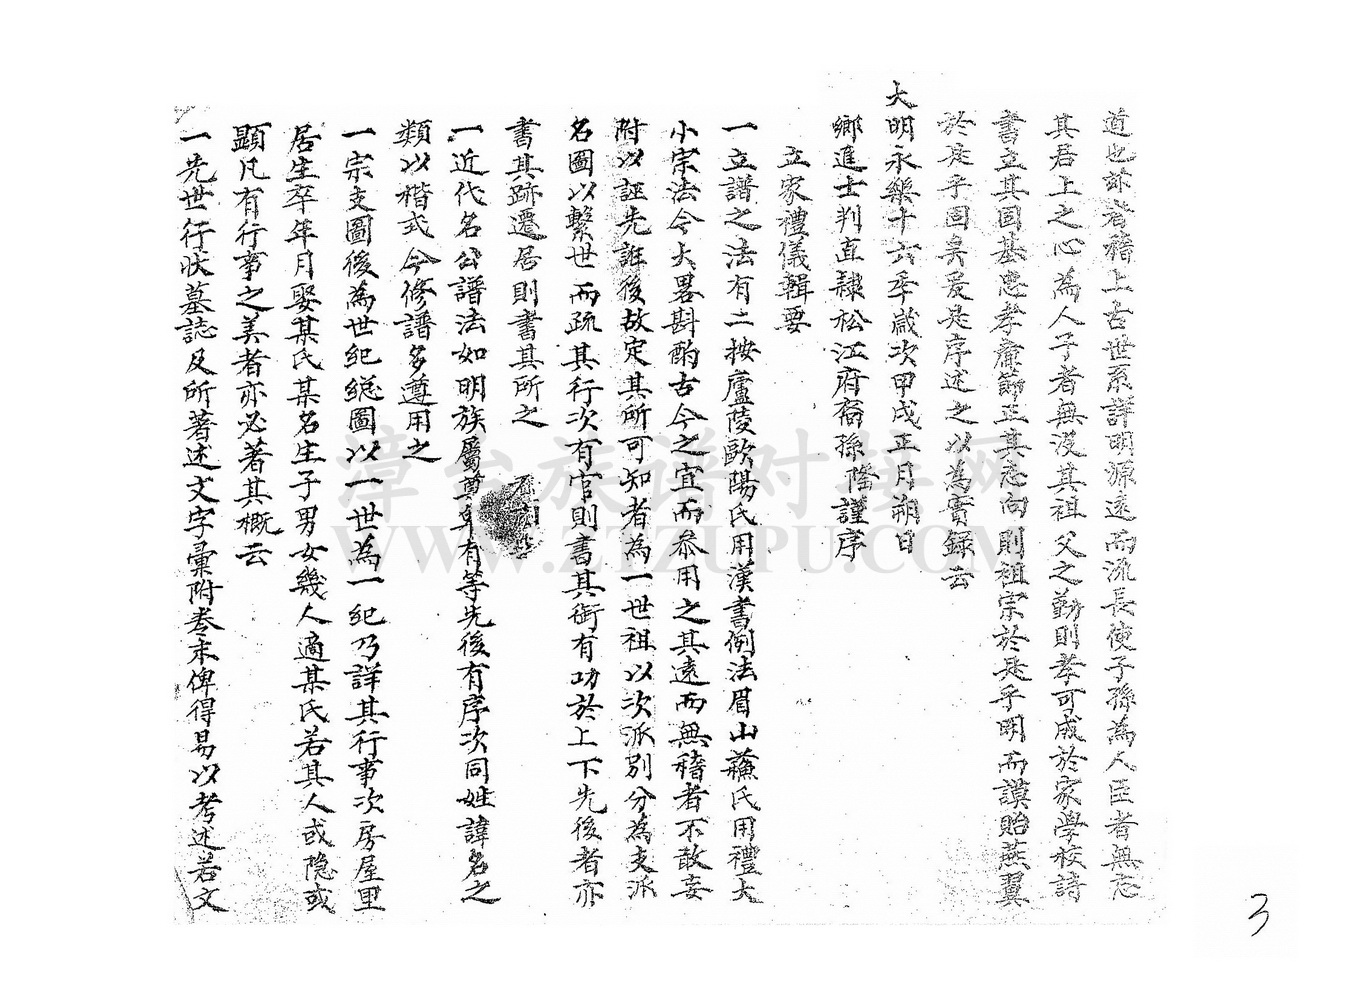 道也故君稽上古世系詳明源遠而流長使子孫為人臣者無忘
其君上之心為人子者無沒其祖父之勤則孝可成於家學校詩
書立其國基忠孝廉節正其志向則祖宗於是乎明而謨貽燕翼
於是乎固矣爰是序述之以為實錄云
大明永樂十六季歲次甲戌正月朔日
鄉進士判直隸松江府裔孫隆謹序
立家禮儀輯要
一立譜之法有二按廬陵歐陽氏用漢書例法眉山蘓氏用禮大
小宗法今大畧斟酌古今之宜而叅用之其遠而無稽者不敢妄
附以誣先誑後故定其所可知者為一世祖以次派別分為支派
名圖以繫世而疏其行次有官則書其銜有功於上下先後者亦
書其跡遷居則書其所之
一近代名公譜法如明族屬尊卑有等先後有序次同姓諱名之
類以楷式今修譜多遵用之
一宗支圖後為世紀總圖以一世為一紀乃詳其行事次房屋里
居生卒年月娶某氏某名生子男女幾人適某氏若其人或隐或
顯凡有行事之美者亦必著其概云
一先世行狀墓誌及所著述文字彙附卷末俾得易以考述若文
3
漳台族谱对接网
WWW.ZTZUPU.COM